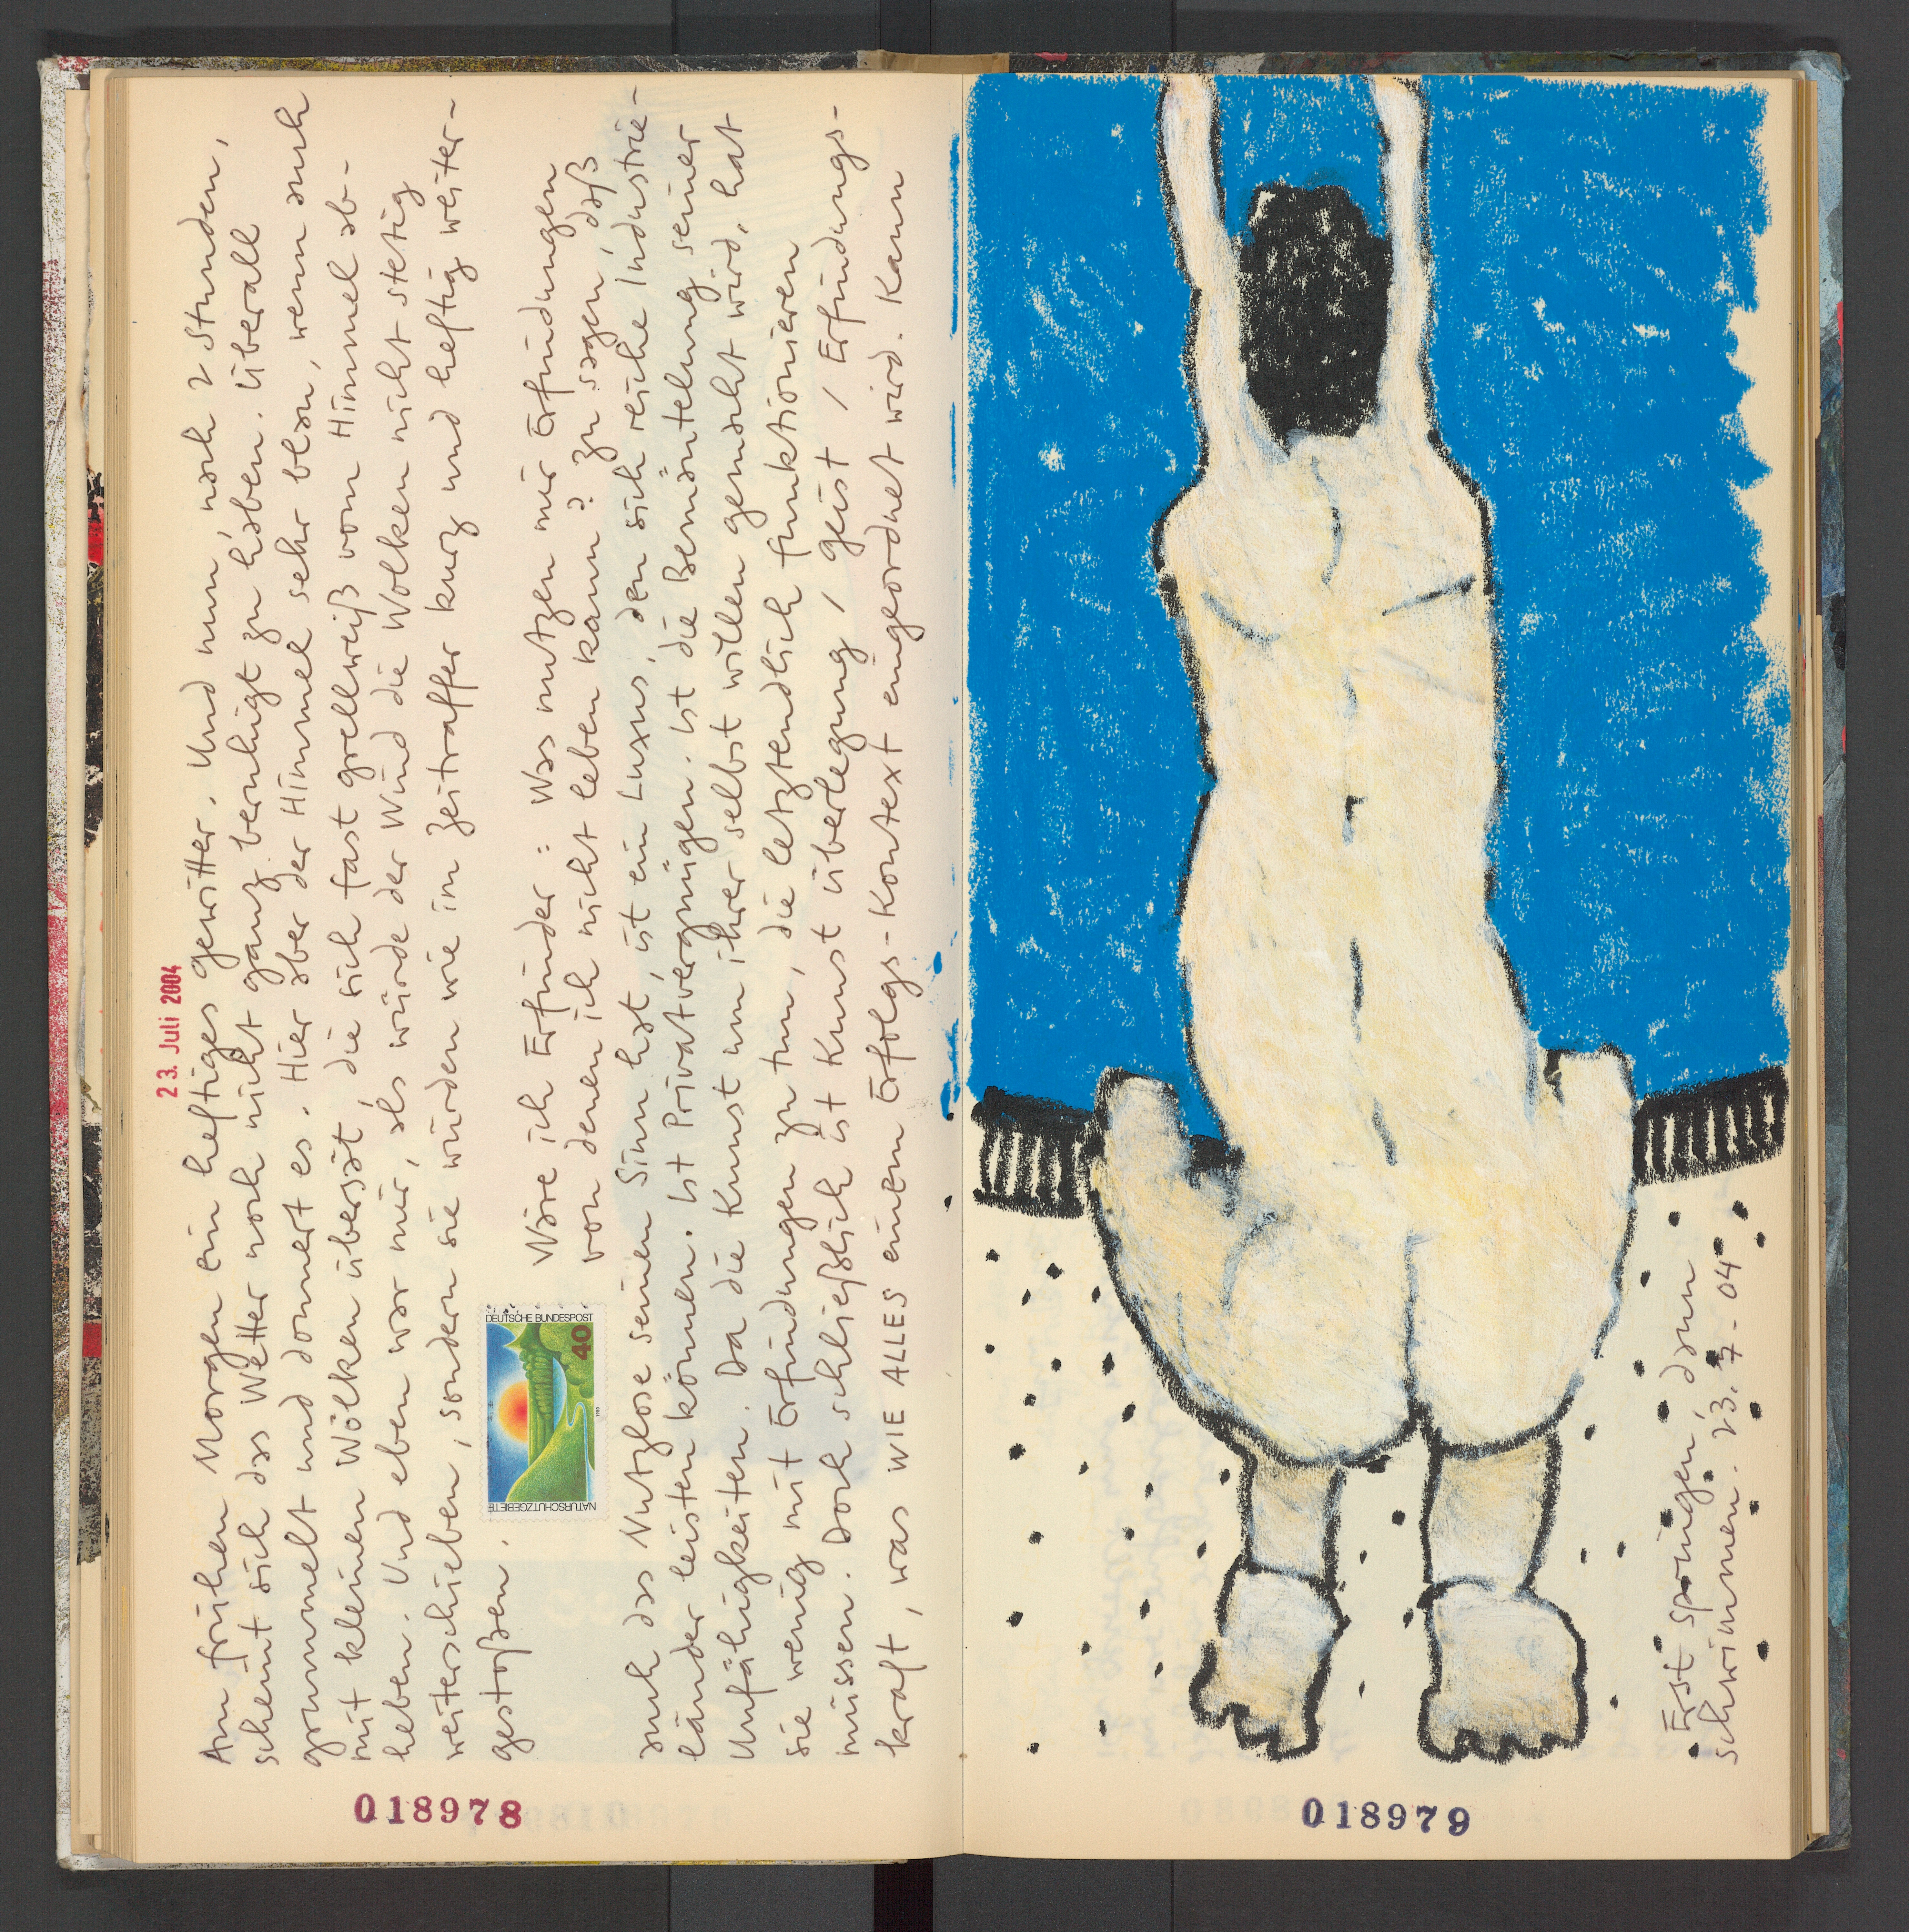 23. Juli 2004
Am frühen Morgen ein heftiges Gewitter. Und nun, nach 2 Stunden,
scheint sich das Wetter noch nicht ganz beruhigt zu haben. Überall
grummelt und donnert es. Hier aber der Himmel sehr blau, wenn auch
mit kleinen Wolken übersät, die sich fast grellweiß vom Himmel ab-
heben. Und eben war mir, als würde der Wind die Wolken nicht stetig
weiterschieben, sondern sie würden wie im Zeitraffer kurz und heftig weiter-
gestoßen.
DEUTSCHE BUNDESPOST
40
NATURSCHUTZGEBIETE
1980
Wäre ich Erfinder: Was nutzen mir Erfindungen
von denen ich nicht leben kann? Zu sagen, daß
auch das Nutzlose seinen Sinn hat, ist ein Luxus, den sich reiche Industrie-
länder leisten können. Ist Privatvergnügen. Ist die Bemäntelung seiner
Unfähigkeiten. Da die Kunst um ihrer selbst willen gemacht wird, hat
sie wenig mit Erfindungen zu tun, die letztendlich funktionieren
müssen. Doch schließlich ist Kunst Überlegung / Geist / Erfindungs-
kraft, was WIE ALLES einem Erfolgs-Kontext eingeordnet wird. Kann
018978
Erst springen, dann
schwimmen. 23.7-04
018979